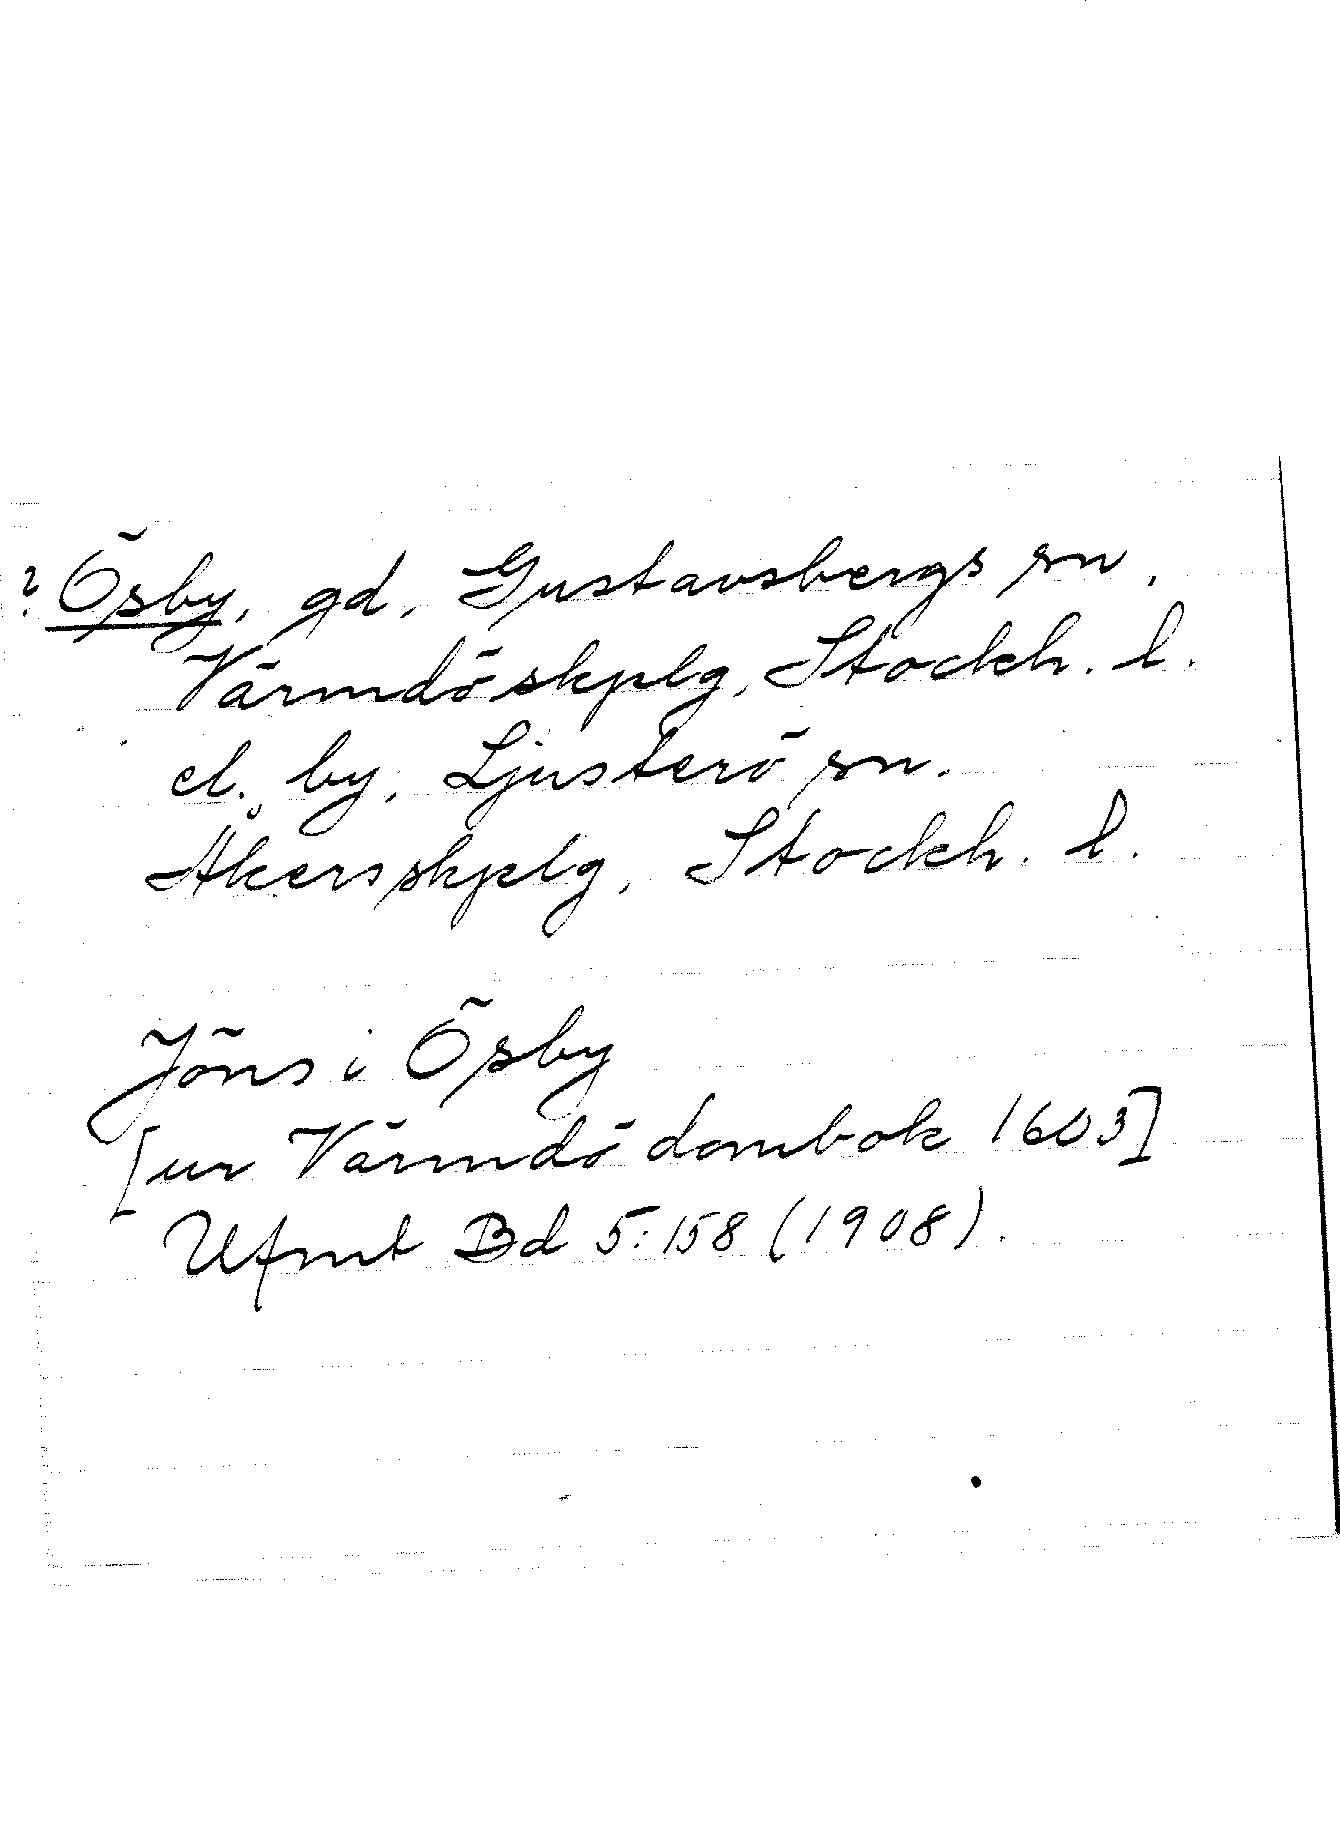 ? Ösby, gd, Gustavsbergs sn,
Värmdö skplg, Stockh. l.
el. by, Ljusterö sn.
Åkers skplg, Stockh. l.
Jöns i Ösby
[ur Värmdö dombok 1603]
Ufmt Bd 5:158 (1908).